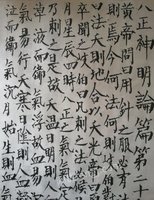 八正神明論篇第
黃帝問曰用針之服必有法
則焉今何法何則岐伯對
曰法天則地合以天光帝曰
卒聞之岐伯曰凡刺之法必候
月星辰四時八正之氣氣
乃刺之是故天溫日明則人
淖液而衛氣浮故血易
氣易行天寒日陰則人血
泣而衛氣沉月始生則血